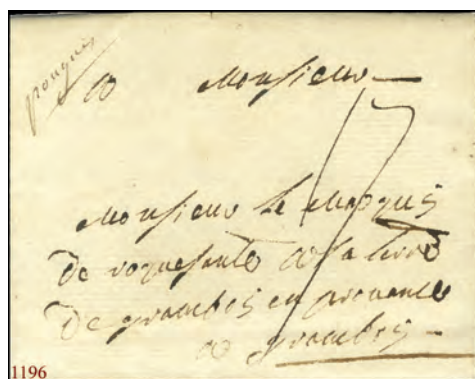 pougues
a Monsieur
Monsieur le Marquis
de roquesante a Sa terre
de grambois en provence
a grambois
1196